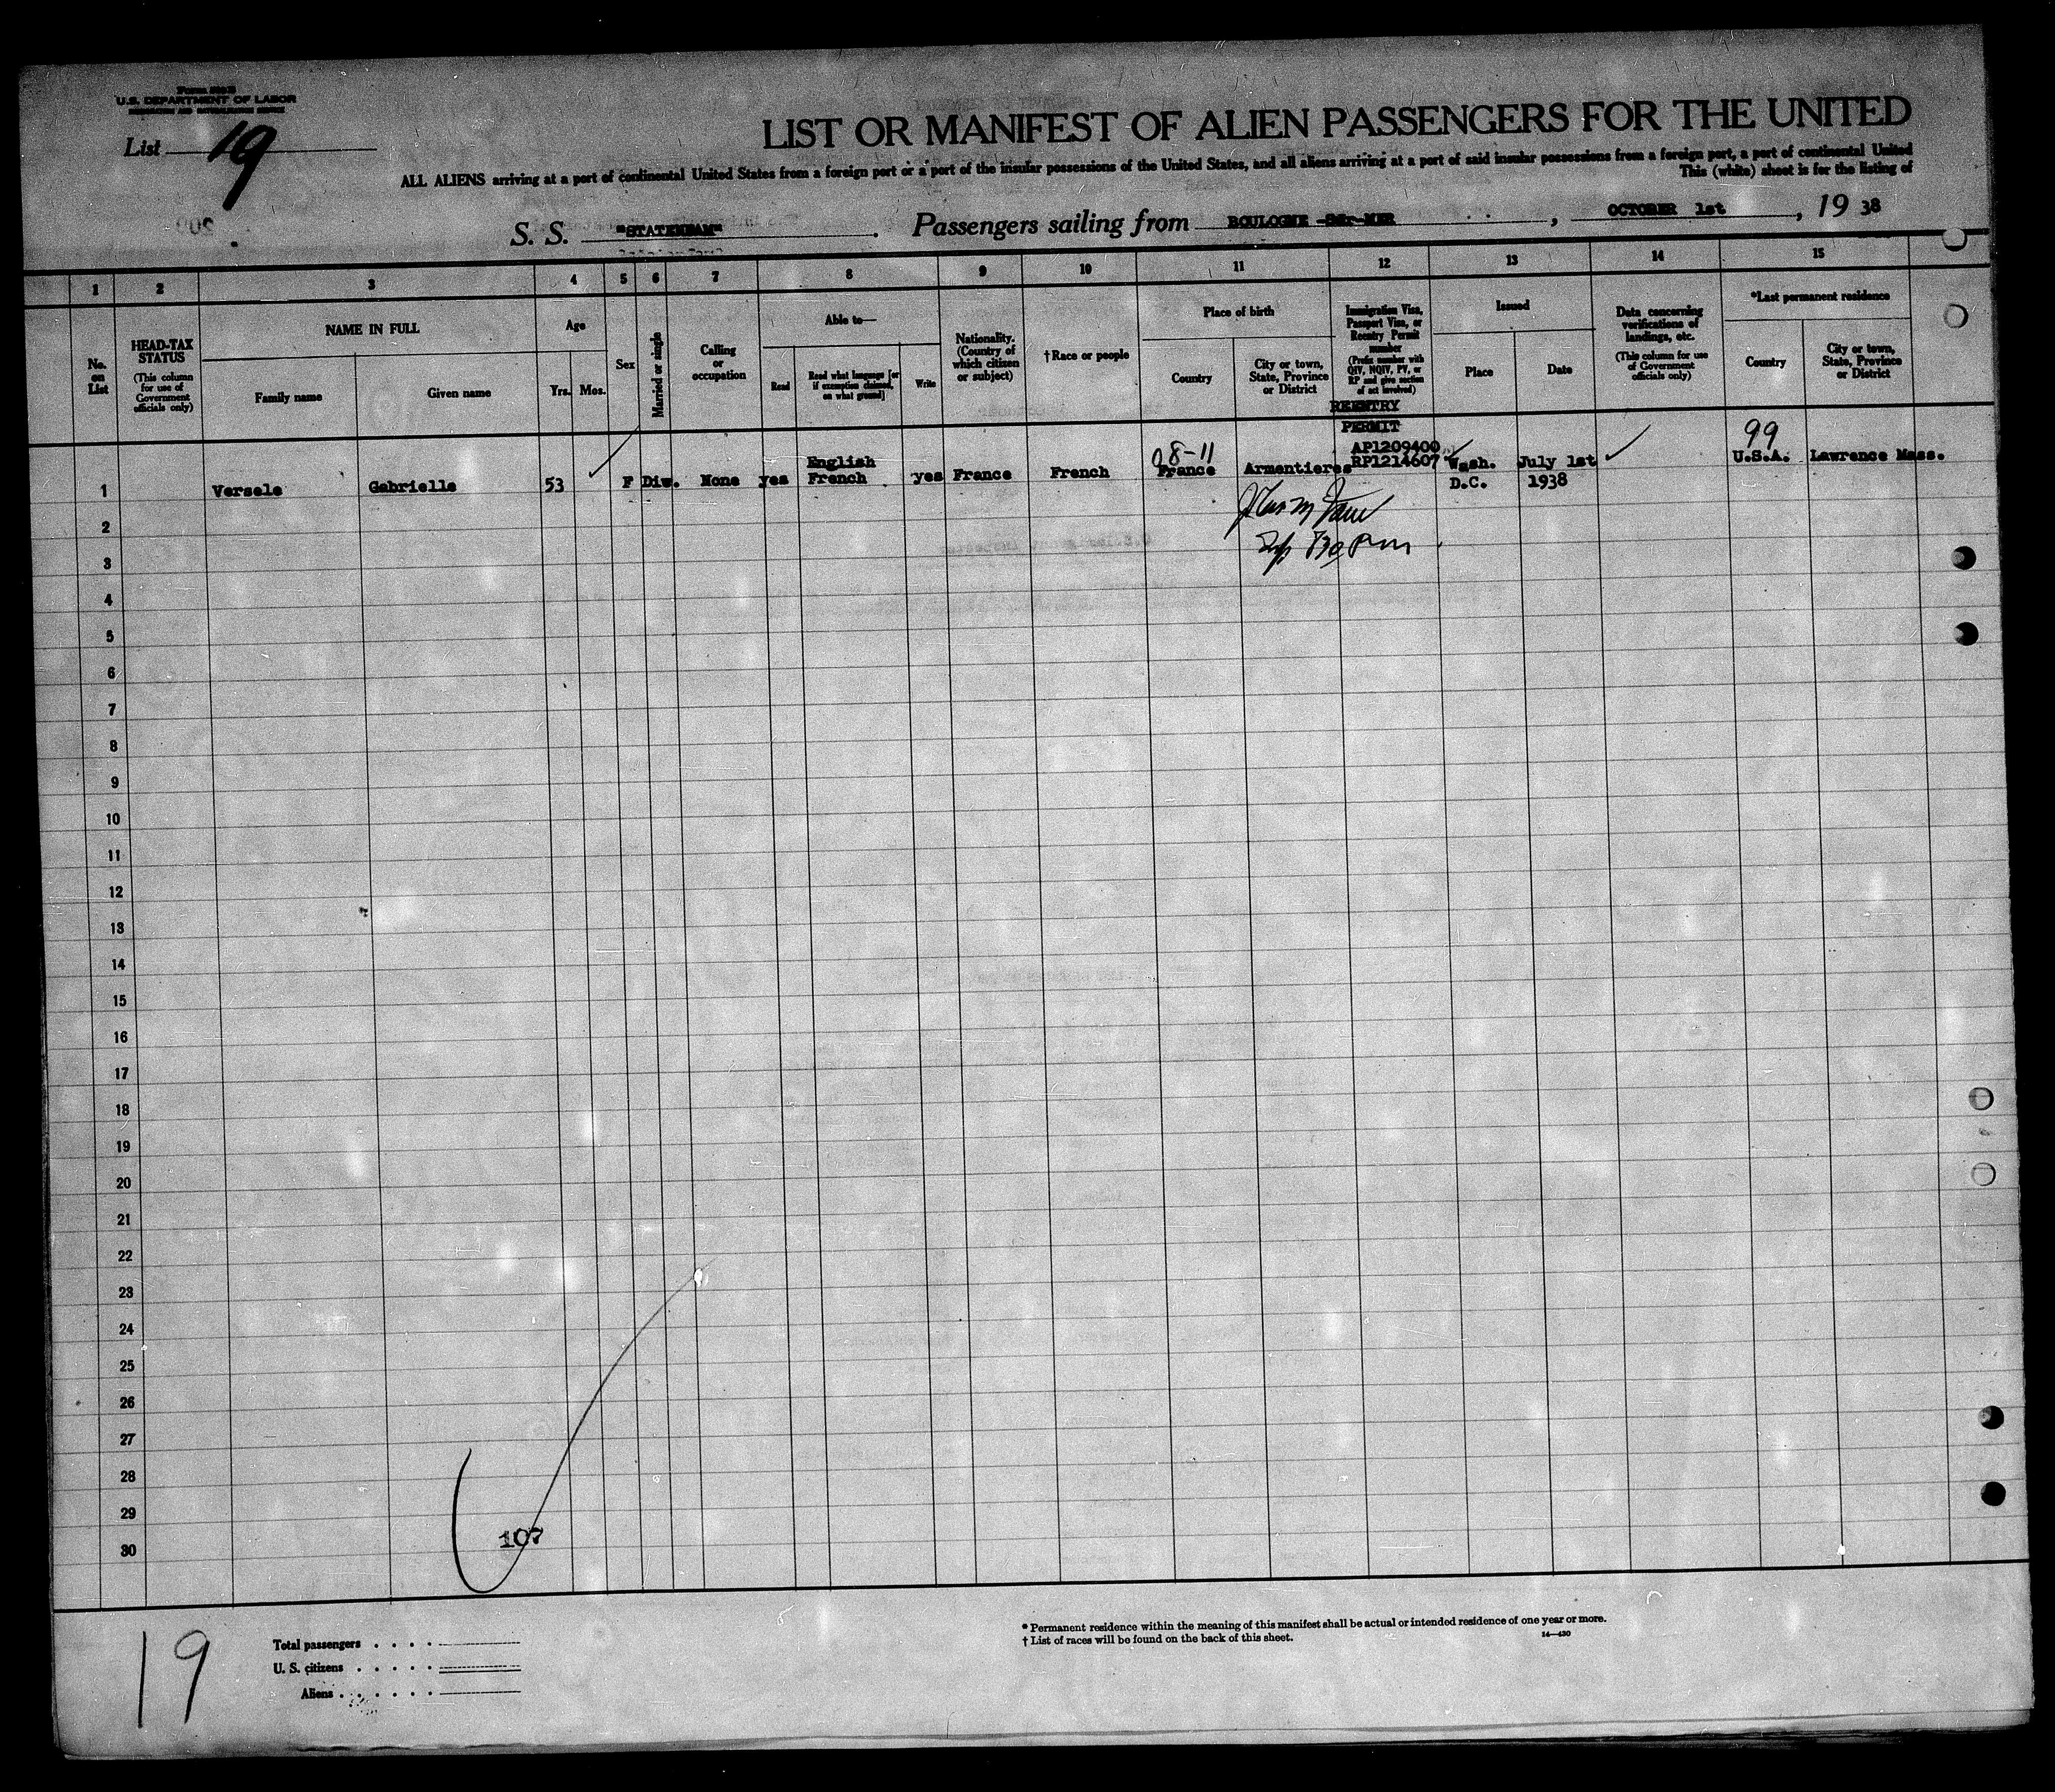 U.S. DEPARTMENT OF LABOR
List 19
LIST OR MANIFEST OF ALIEN PASSENGERS FOR THE UNITED
ALL ALIENS arriving at a port of continental United States from a foreign port or a port of the insular possessions of the United States, and all aliens arriving at a port of said insular possessions from a foreign port, a port of continental United
This (white) sheet is for the listing of
S. S. "STATENDAM" Passengers sailing from BOULOGNE -Sur-MER, OCTOBER 1st, 19 38
1 2 3 4 5 6 7 8 9 10 11 12 13 14 15
No. on List
HEAD-TAX STATUS
(This column for use of Government officials only)
NAME IN FULL
Family name
Given name
Age
Yrs. Mos.
Sex
Married or single
Calling or occupation
Able to—
Read
Read what language [or if exemption claimed, on what ground]
Write
Nationality. (Country of which citizen or subject)
†Race or people
Place of birth
Country
City or town, State, Province or District
Immigration Visa, Passport Visa, or Reentry Permit number
(Prefix number with QIV, NQIV, PV, or RP and give section of act involved)
Issued
Place
Date
Data concerning verifications of landings, etc.
(This column for use of Government officials only)
*Last permanent residence
Country
City or town, State, Province or District
REENTRY
PERMIT
1 Versele Gabrielle 53 F Div. None yes English French yes France French 08-11 France Armentieres AP1209400 RP1214607 Wash. D.C. July 1st 1938 99 U.S.A. Lawrence Mass.
2
3
4
5
6
7
8
9
10
11
12
13
14
15
16
17
18
19
20
21
22
23
24
25
26
27
28
29
30
107
19
Total passengers
U. S. citizens
Aliens
* Permanent residence within the meaning of this manifest shall be actual or intended residence of one year or more.
† List of races will be found on the back of this sheet.
14—430